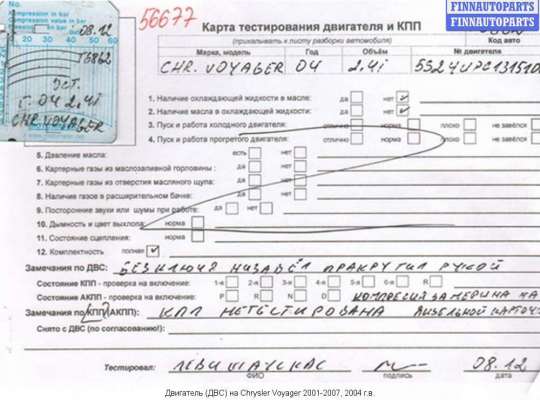 FINNAUTOPARTS
FINNAUTOPARTS
No.
Compression in bar
30 40 50 60
08.12
T6862
04 2,4i
CHR. VOYAGER
56677
Карта тестирования двигателя и КПП
(прикалывать к листу разборки автомобиля)
Код авто
Марка, модель Год Объём № двигателя
CHR. VOYAGER 04 2,4i
1. Наличие охлаждающей жидкости в масле: да нет
2. Наличие масла в охлаждающей жидкости: да нет
3. Пуск и работа холодного двигателя: отлично норма плохо не завёлся
4. Пуск и работа прогретого двигателя: отлично норма плохо не завёлся
5. Давление масла: есть нет
6. Картерные газы из маслозаливной горловины: да нет
7. Картерные газы из отверстия масляного щупа: да нет
8. Наличие газов в расширительном бачке: да нет
9. Посторонние звуки или шумы при работе: да нет
10. Дымность и цвет выхлопа: норма
11. Состояние сцепления: норма
12. Комплектность полная
Замечания по ДВС: БЕЗ КЛЮЧЯ НИЗАВЁЛ ПРАКРУТИЛ РУКОЙ
Состояние КПП - проверка на включение: 1-я 2-я 3-я 4-я 5-я 6-я R
Состояние АКПП - проверка на включение: P R N D
Замечания по(КПП/АКПП): КПП НЕТЕСТИРОВАНА
Снято с ДВС (по согласованию!):
Тестировал: ЛЕВИШАУСКАС 08.12
ФИО подпись дата
Двигатель (ДВС) на Chrysler Voyager 2001-2007, 2004 г.в.